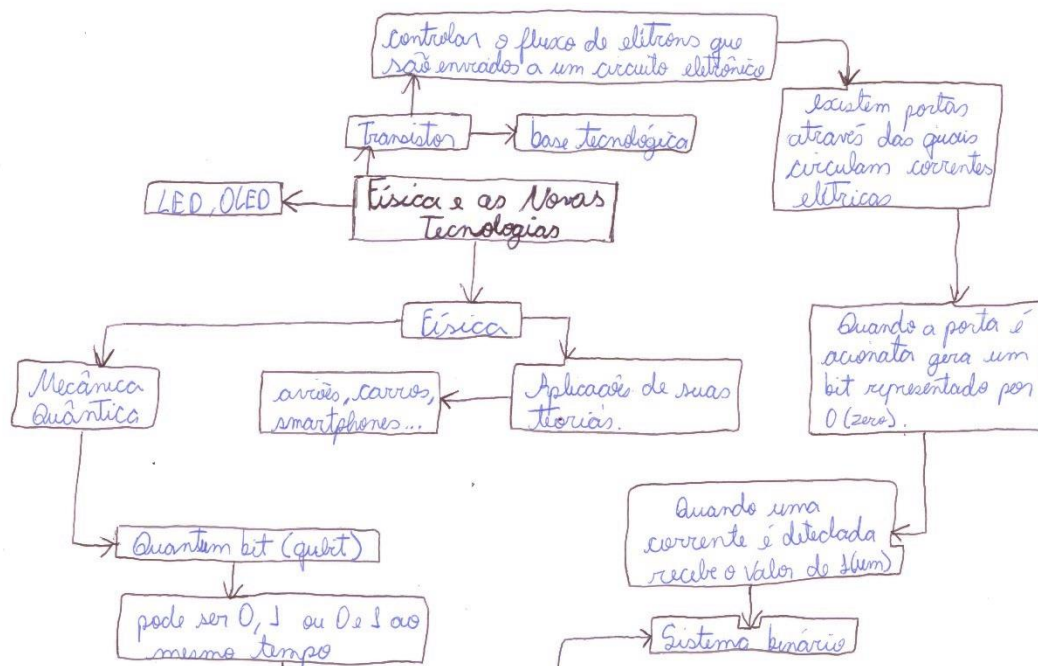 controlar o fluxo de elétrons que
são enviados a um circuito eletrônico
existem portas
através das quais
circulam correntes
elétricas
Transistor
base tecnológica
LED, OLED
Física e as Novas
Tecnologias
Física
Quando a porta é
acionata gera um
bit representado por
0 (zero).
Mecânica
Quântica
aviões, carros,
smartphones...
Aplicações de suas
teorias.
Quando uma
corrente é detectada
recebe o valor de 1(um)
Quantum bit (qubit)
pode ser 0, 1 ou 0 e 1 ao
mesmo tempo
Sistema binário